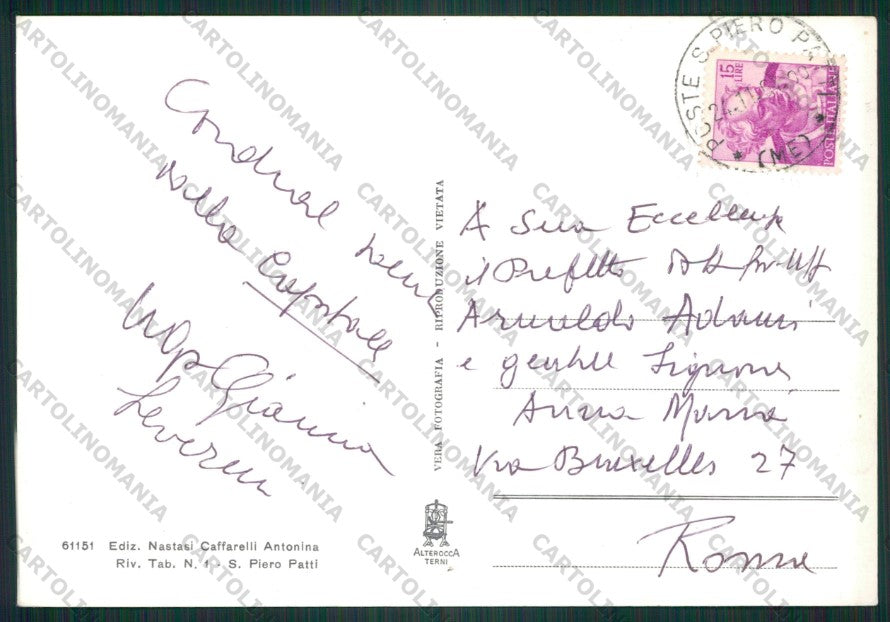 POSTE S. PIERO PATTI
24.11
* (ME) *
15
LIRE
POSTE ITALIANE
Cordiali
dalla Capitale
Gianna
Severini
VERA FOTOGRAFIA - RIPRODUZIONE VIETATA
A Sua Eccellenza
il Prefetto Dott. Gr. Uff
Arnaldo Adami
e gentile Signora
Anna Maria
Via Bruxelles 27
Roma
61151 Ediz. Nastasi Caffarelli Antonina
Riv. Tab. N. 1 - S. Piero Patti
ALTEROCCA
TERNI
CARTOLINOMANIA